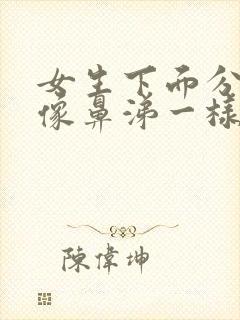 女生下面分
像鼻涕一樣
陳偉坤